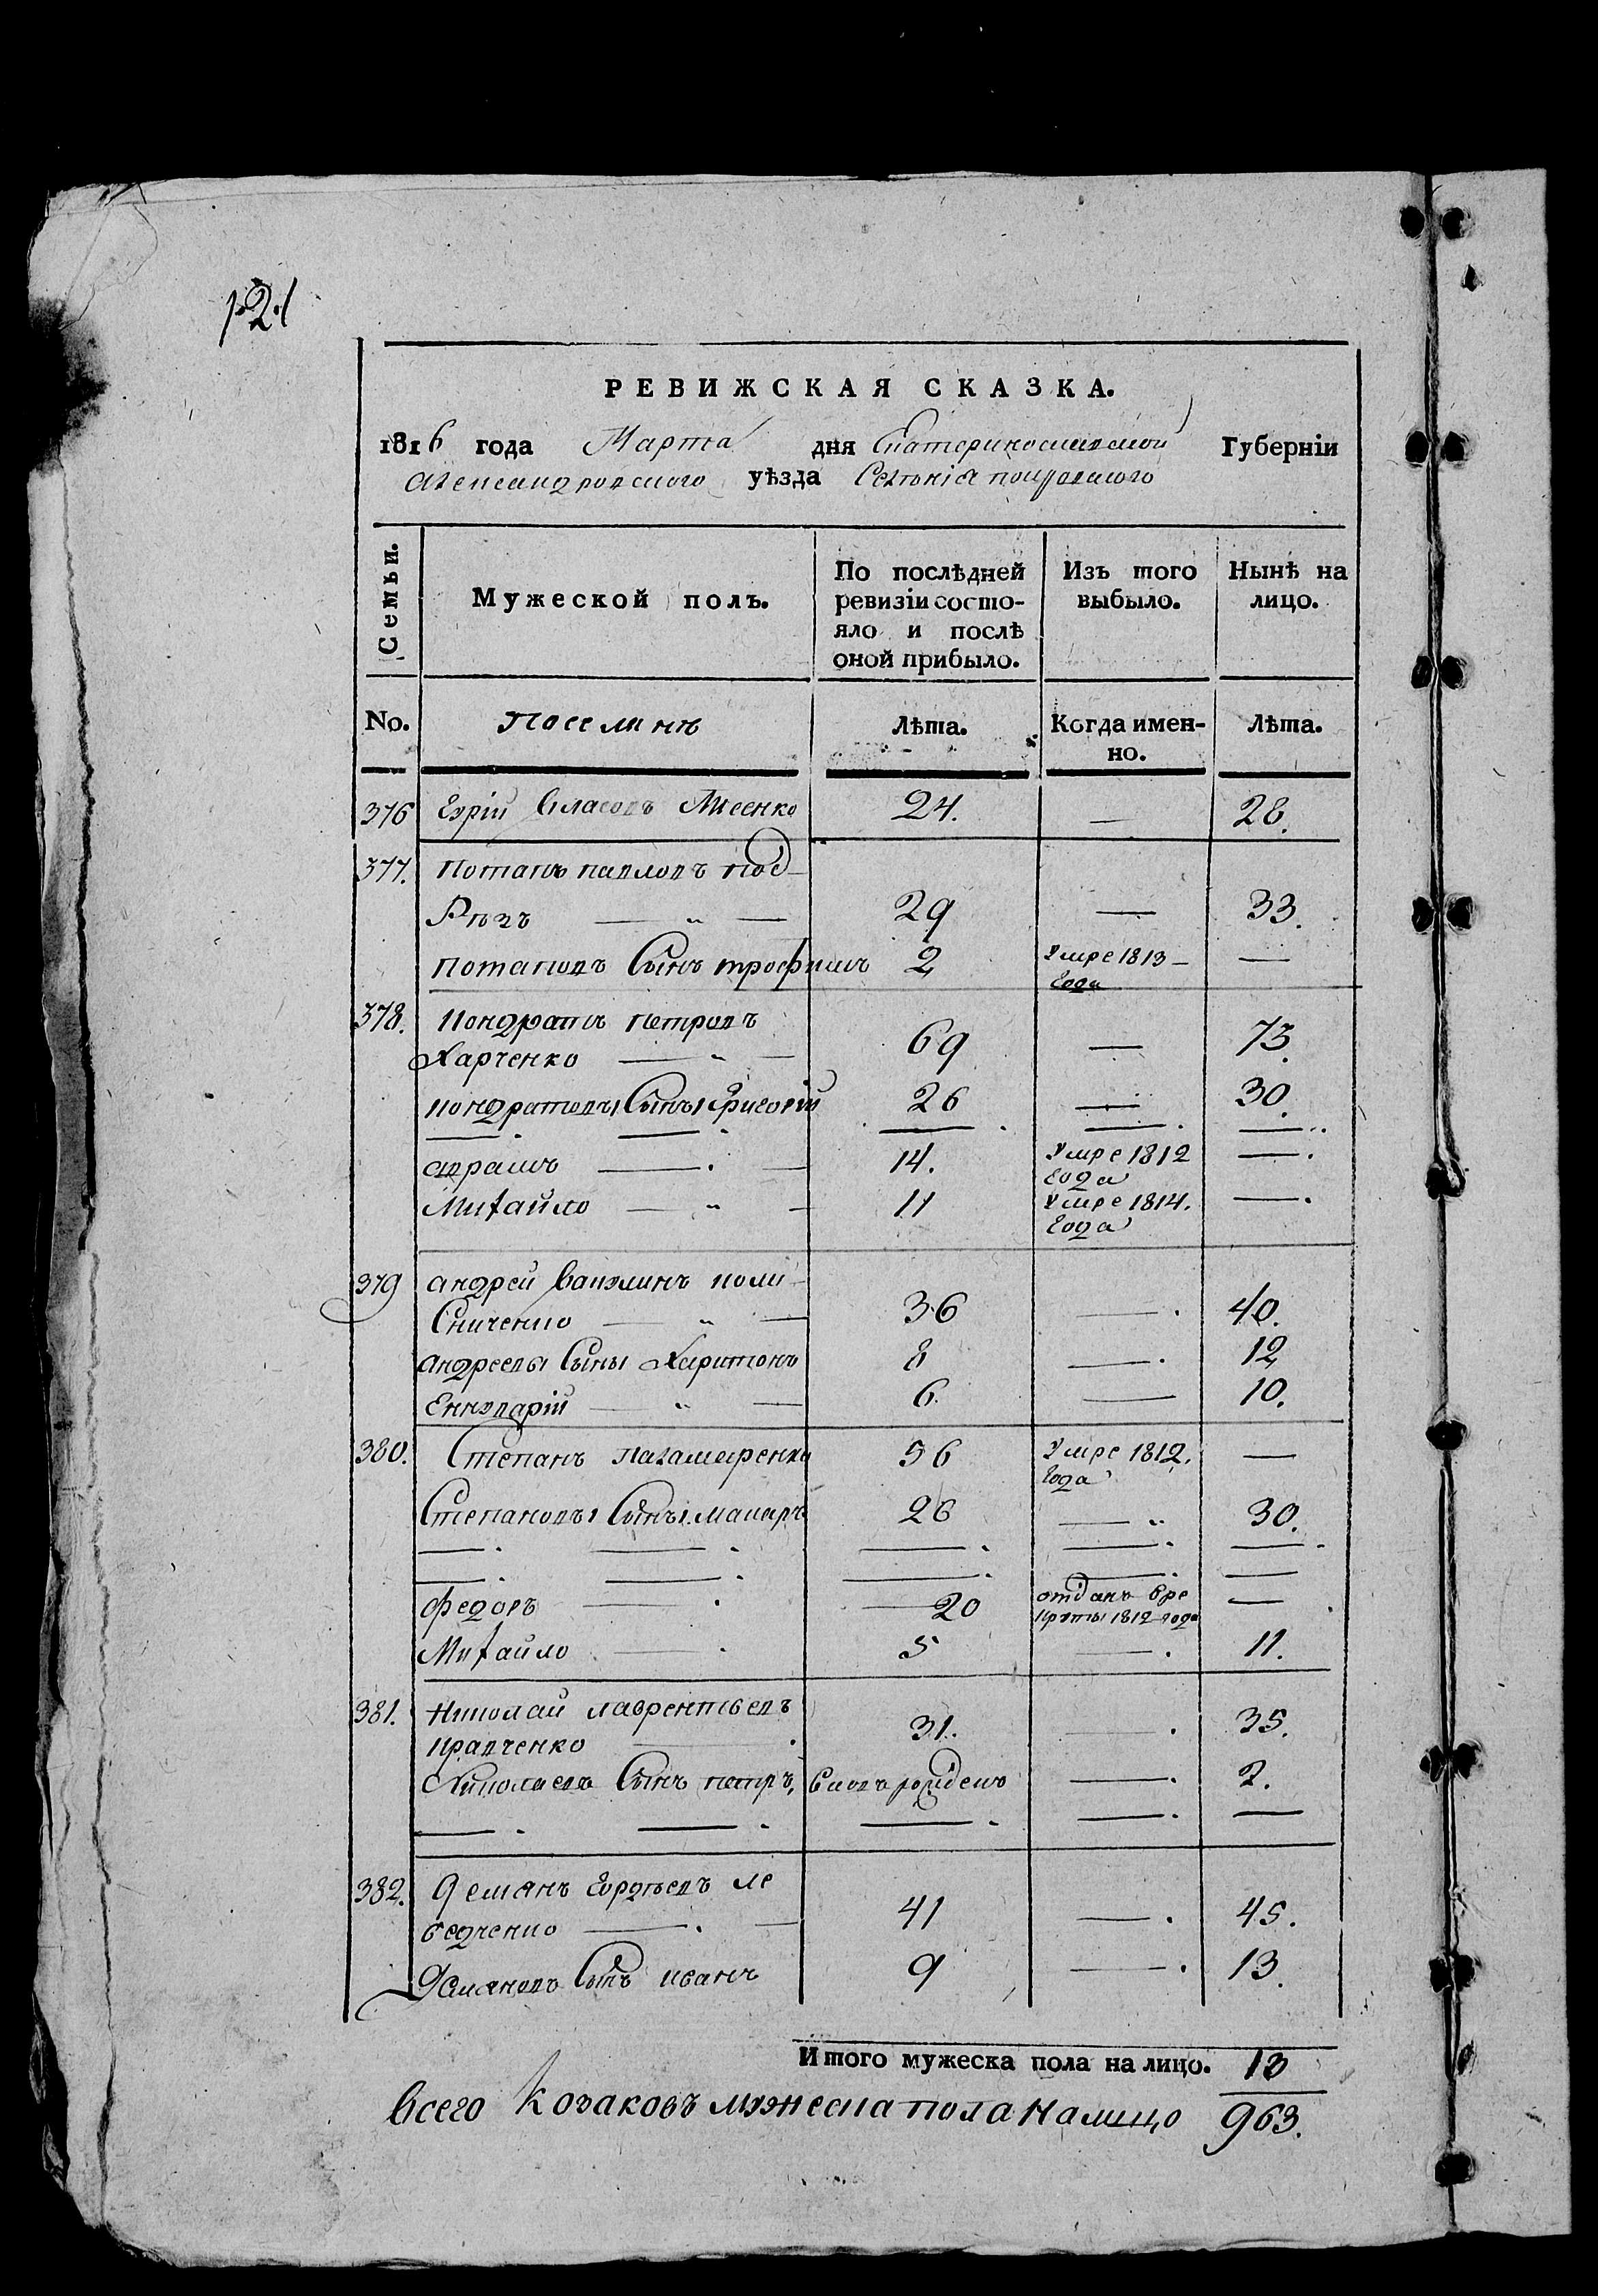 РЕВИЖСКАЯ СКАЗКА.
1816 года Марта дня Екатеринославской Губерніи
Александровского уѣзда Селѣнія покровского
Семьи. Мужеской полъ. По послѣдней ревизіи состояло и послѣ оной прибыло. Изъ того выбыло. Нынѣ на лицо.
No. Лѣта. Когда именно. Лѣта.
376 Власовъ 24. — 28.
377. Потапъ павловъ под-
29 — 33.
потаповъ Сынъ трофимъ 2 Умре 1813 — года —
378. Кондратъ петровъ
Харченко 69 — 73.
кондратовы Сыны григорій 26 — 30.
аврамъ 14. Умре 1812 года —
Михайло 11 Умре 1814. года —
379 андрей вакулинъ коли-
Сниченко 36 — 40.
андреевы Сыны Харитонъ 8 — 12
Еннуарій 6. — 10.
380. Степанъ паламаренко 56 Умре 1812. года —
Степановы Сыны макаръ 26 — 30.
федоръ 20 отданъ вре круты 1812 года —
Михайло 5 — 11.
381. Николай лаврентьевъ
кравченко 31. — 35.
Николаевъ Сынъ петръ, вновь рожденъ — 2.
382. Демянъ ле
бедченко 41 — 45.
Демяновъ Сынъ иванъ 9 — 13.
Итого мужеска пола на лицо. 13
всего Козаковъ мужеска пола налицо 963.